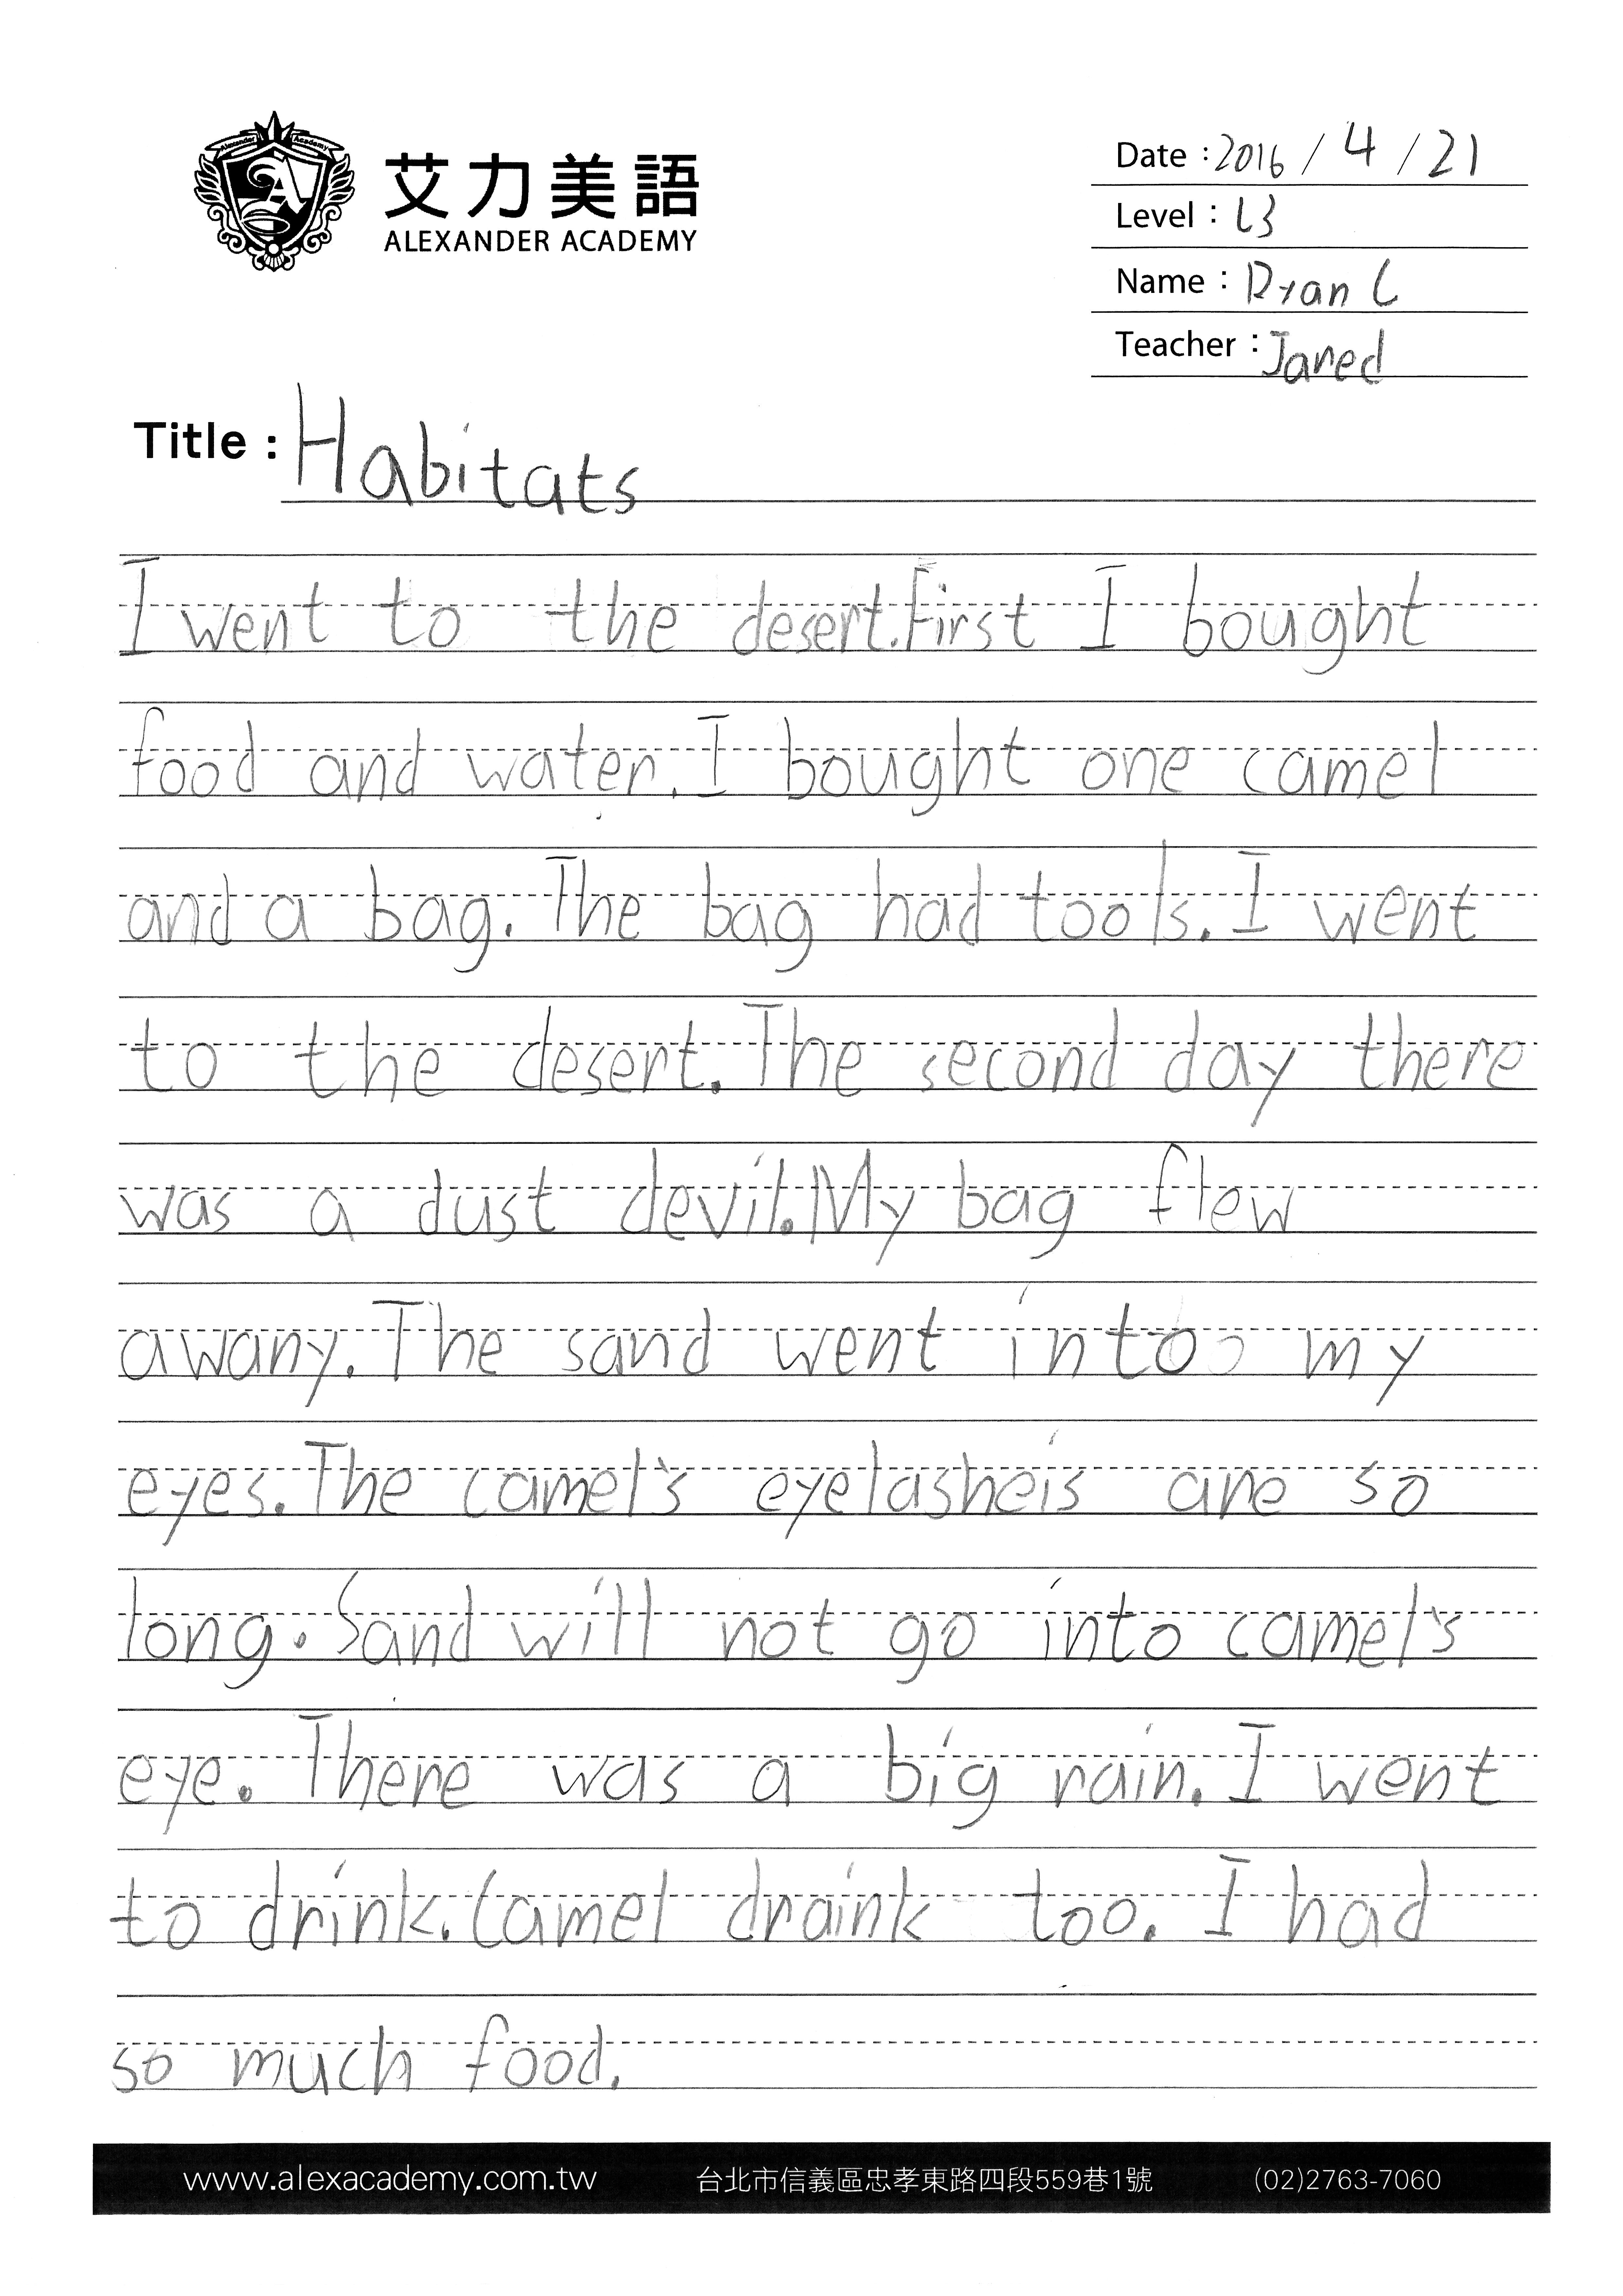 Alexander Academy
艾力美語
ALEXANDER ACADEMY
Date : 2016 / 4 / 21
Level : L3
Name : Ryan C
Teacher : Jared
Title : Habitats
I went to the desert. First I bought
food and water. I bought one camel
and a bag. The bag had tools. I went
to the desert. The second day there
was a dust devil. My bag flew
awany. The sand went into my
eyes. The camel's eyelasheis are so
long. Sand will not go into camel's
eye. There was a big rain. I went
to drink. Camel draink too. I had
so much food.
www.alexacademy.com.tw 台北市信義區忠孝東路四段559巷1號 (02)2763-7060